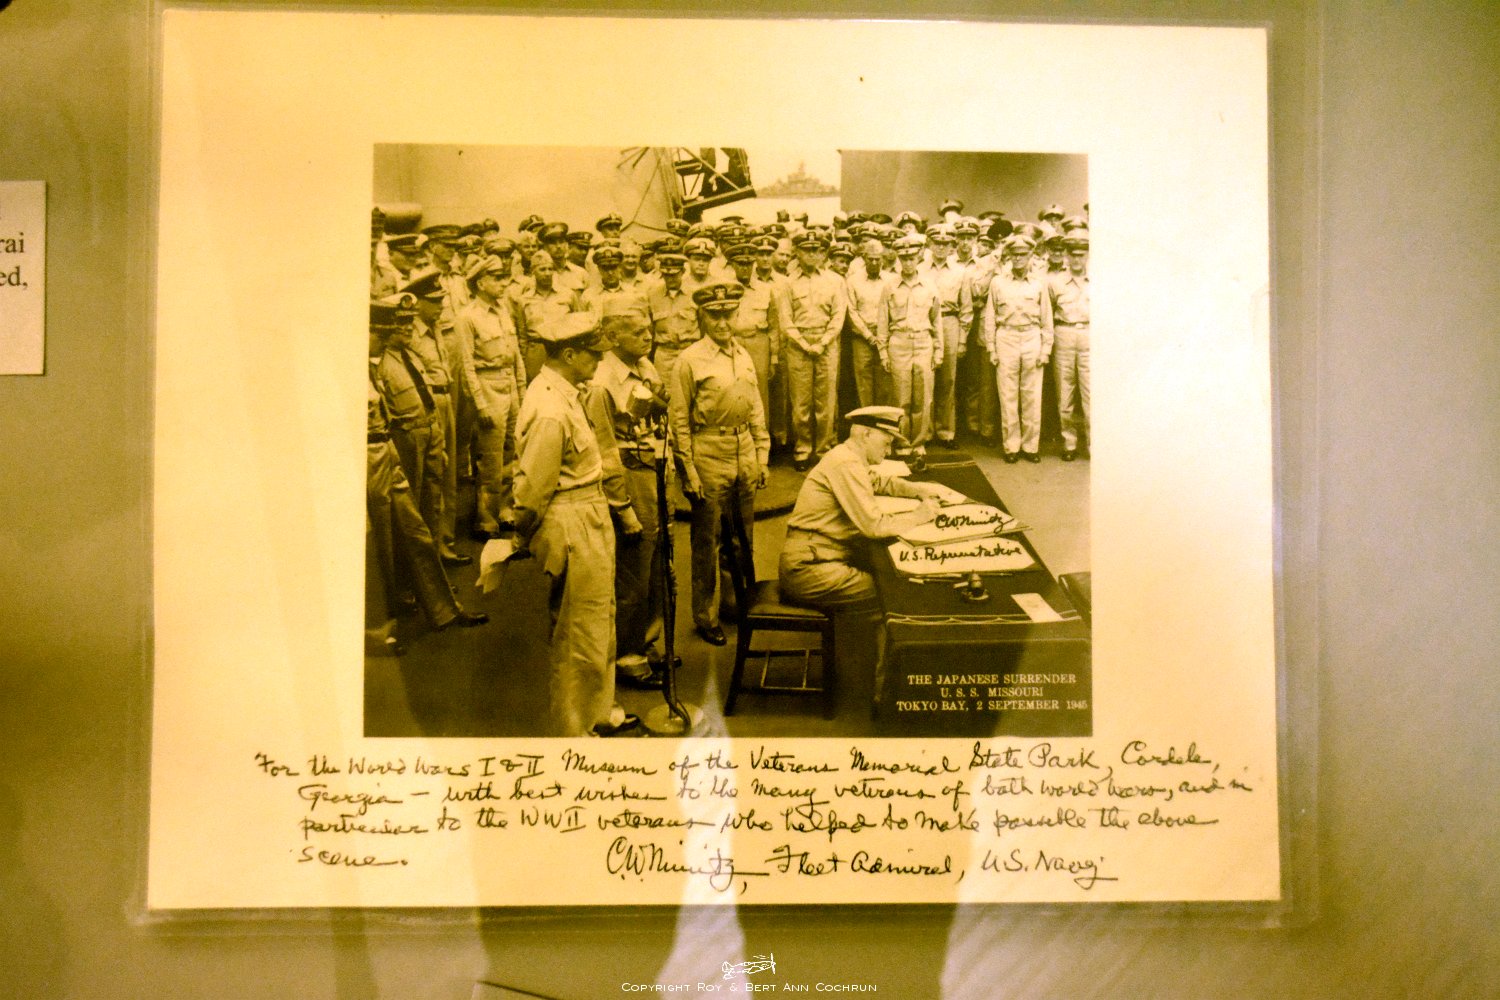 rai
ed,
C.W.Nimitz
U.S. Representative
THE JAPANESE SURRENDER
U. S. S. MISSOURI
TOKYO BAY, 2 SEPTEMBER 1945
For the World Wars I & II Museum of the Veterans Memorial State Park, Cordele,
Georgia — with best wishes to the many veterans of both world wars, and in
particular to the WW II veterans who helped to make possible the above
scene.
C.W. Nimitz, Fleet Admiral, U.S. Navy
Copyright Roy & Bert Ann Cochrun